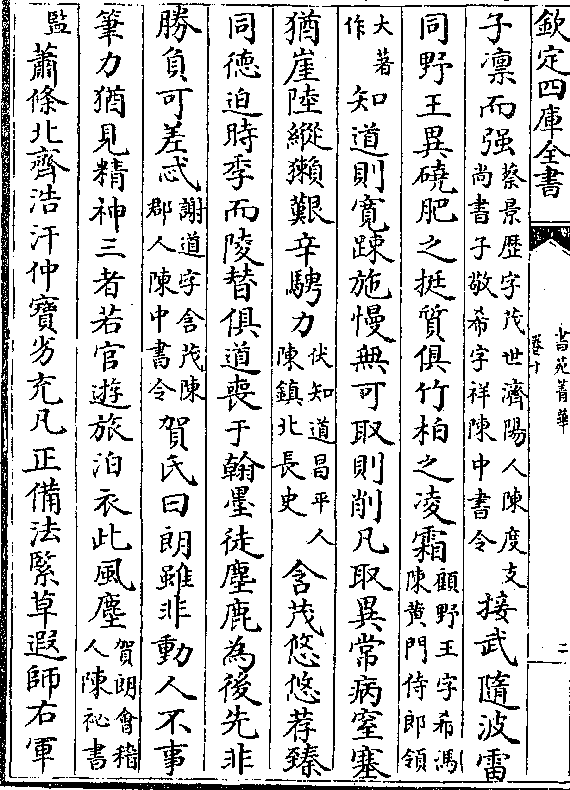 欽定四庫全書
書苑菁華
卷十
二
子凛而强蔡景歴字茂世濟陽人陳度支尚書子敬希字祥陳中書令接武隨波雷
同野王異磽肥之挺質俱竹柏之凌霜顧野王字希馮陳黄門侍郎領
大著作知道則寛踈施慢無可取則削凡取異常病窒塞
猶崖陸縱獺艱辛騁力伏知道昌平人陳鎮北長史含茂悠悠荐臻
同德迫時李而陵替俱道喪于翰墨徒麈鹿為後先非
勝負可差忒謝道字含茂陳郡人陳中書令賀氏曰朗雖非動人不事
筆力猶見精神三者若官遊旅泊衣此風塵賀朗會稽人陳袐書
監蕭條北齊浩汗仲寳劣充凡正備法緊草遐師右軍